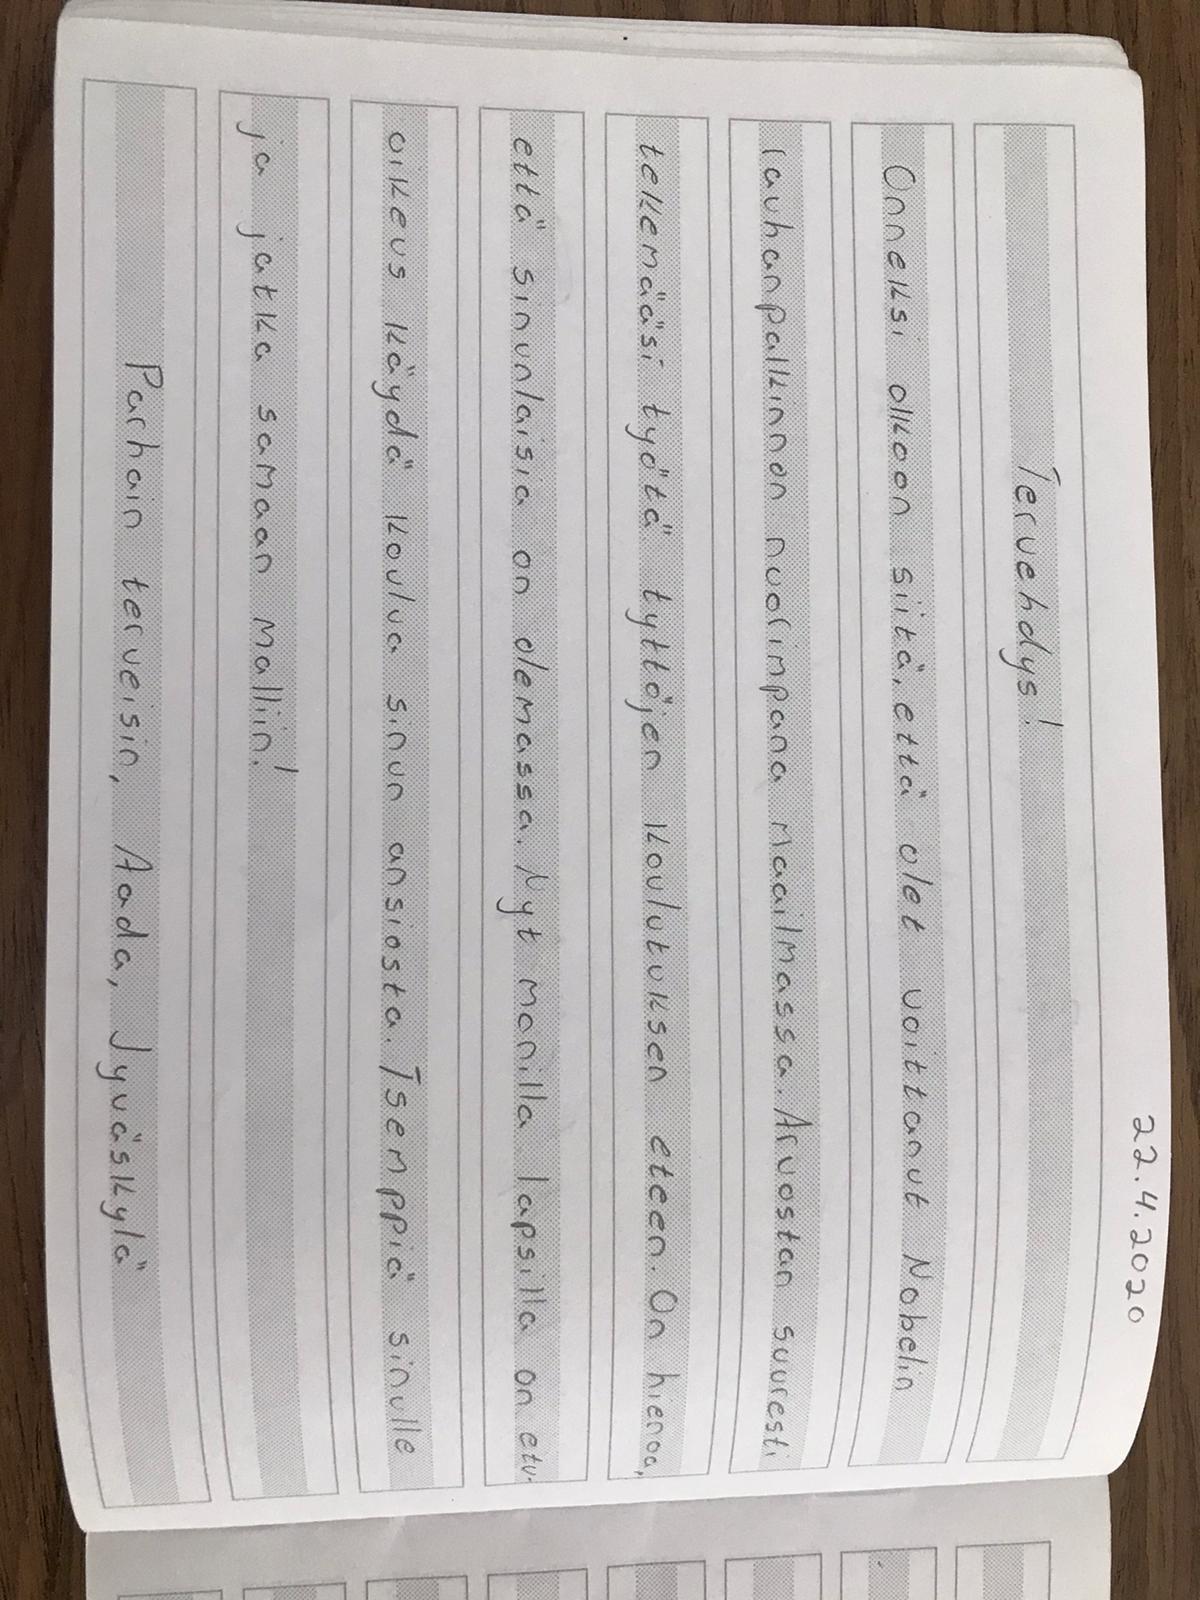 22.4.2020
Tervehdys!
Onneksi olkoon siitä, että olet voittanut Nobelin
rauhanpalkinnon nuorimpana maailmassa. Arvostan suuresti
tekemääsi työtä tyttöjen koulutuksen eteen. On hienoa,
että sinunlaisia on olemassa. Nyt monilla lapsilla on etu-
oikeus käydä koulua sinun ansiosta. Tsemppiä sinulle
ja jatka samaan malliin!
Parhain terveisin, Aada, Jyväskylä